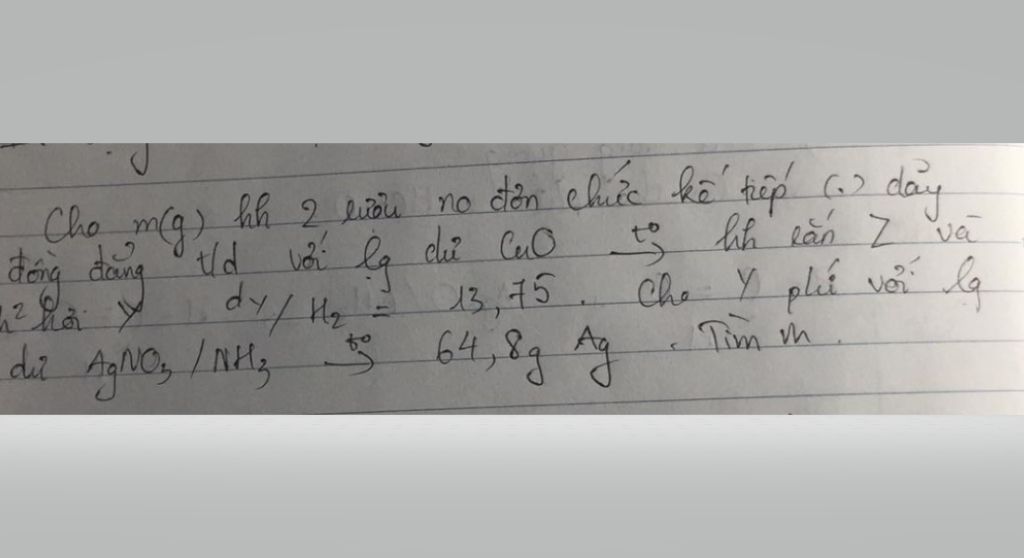 Cho m(g) hh 2 rượu no đơn chức kế tiếp (.) dãy
đồng đẳng t/d với lg dư CuO →t° hh rắn Z và
h² hơi Y dY/H₂ = 13,75. Cho Y pứ với lg
dư AgNO₃/NH₃ →t° 64,8g Ag. Tìm m.